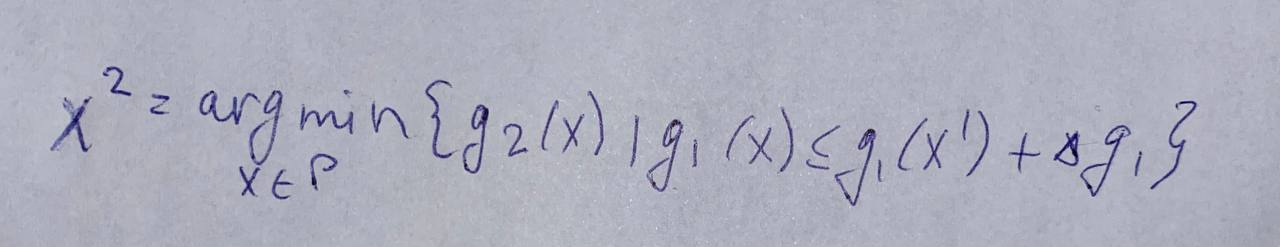 x² = arg min {g₂(x) | g₁(x) ≤ g₁(x¹) + Δg₁}
x ∈ P